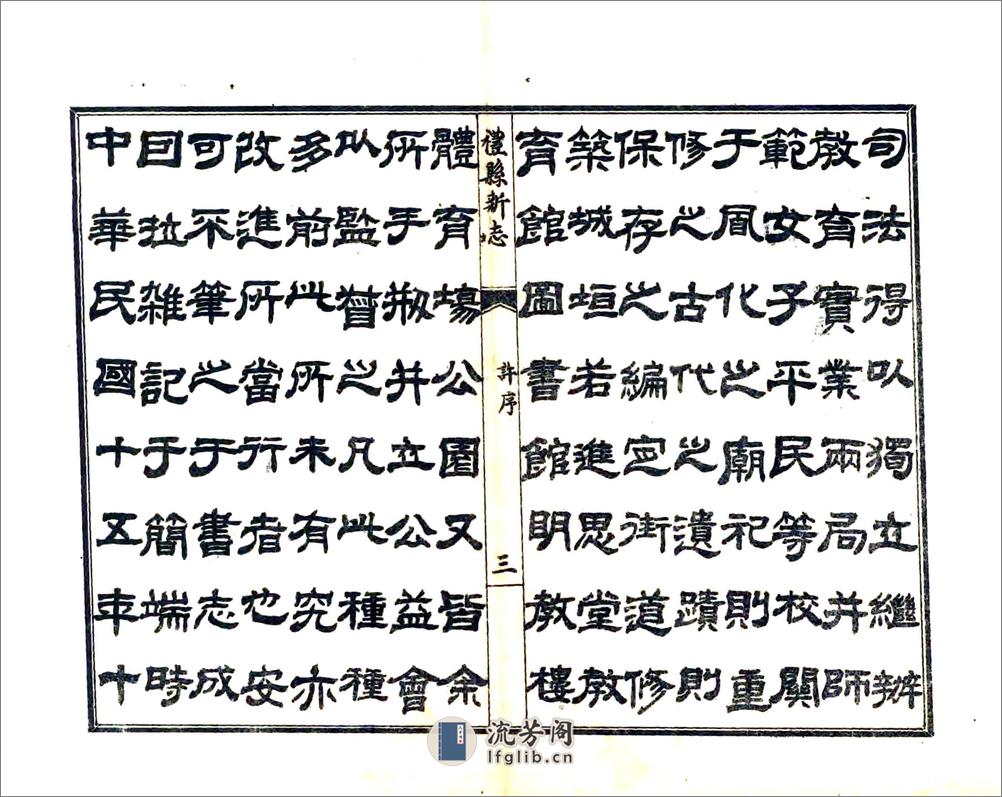 司法得以獨立繼辦
教育實業兩局并師
範女子平民等校關
于風化之廟祀則重
修之古代之遺蹟則
保存之編定街道修
築城垣若進思堂教
育館圖書館明教樓
禮縣新志
許序
三
體育場公園又皆余
所手剏并立公益會
以監督之凡此種種
多前此所未有究亦
改進所當行者也安
可不筆之于書志成
囙拉雜記于簡端時
中華民國十五年十
流芳阁
lfglib.cn